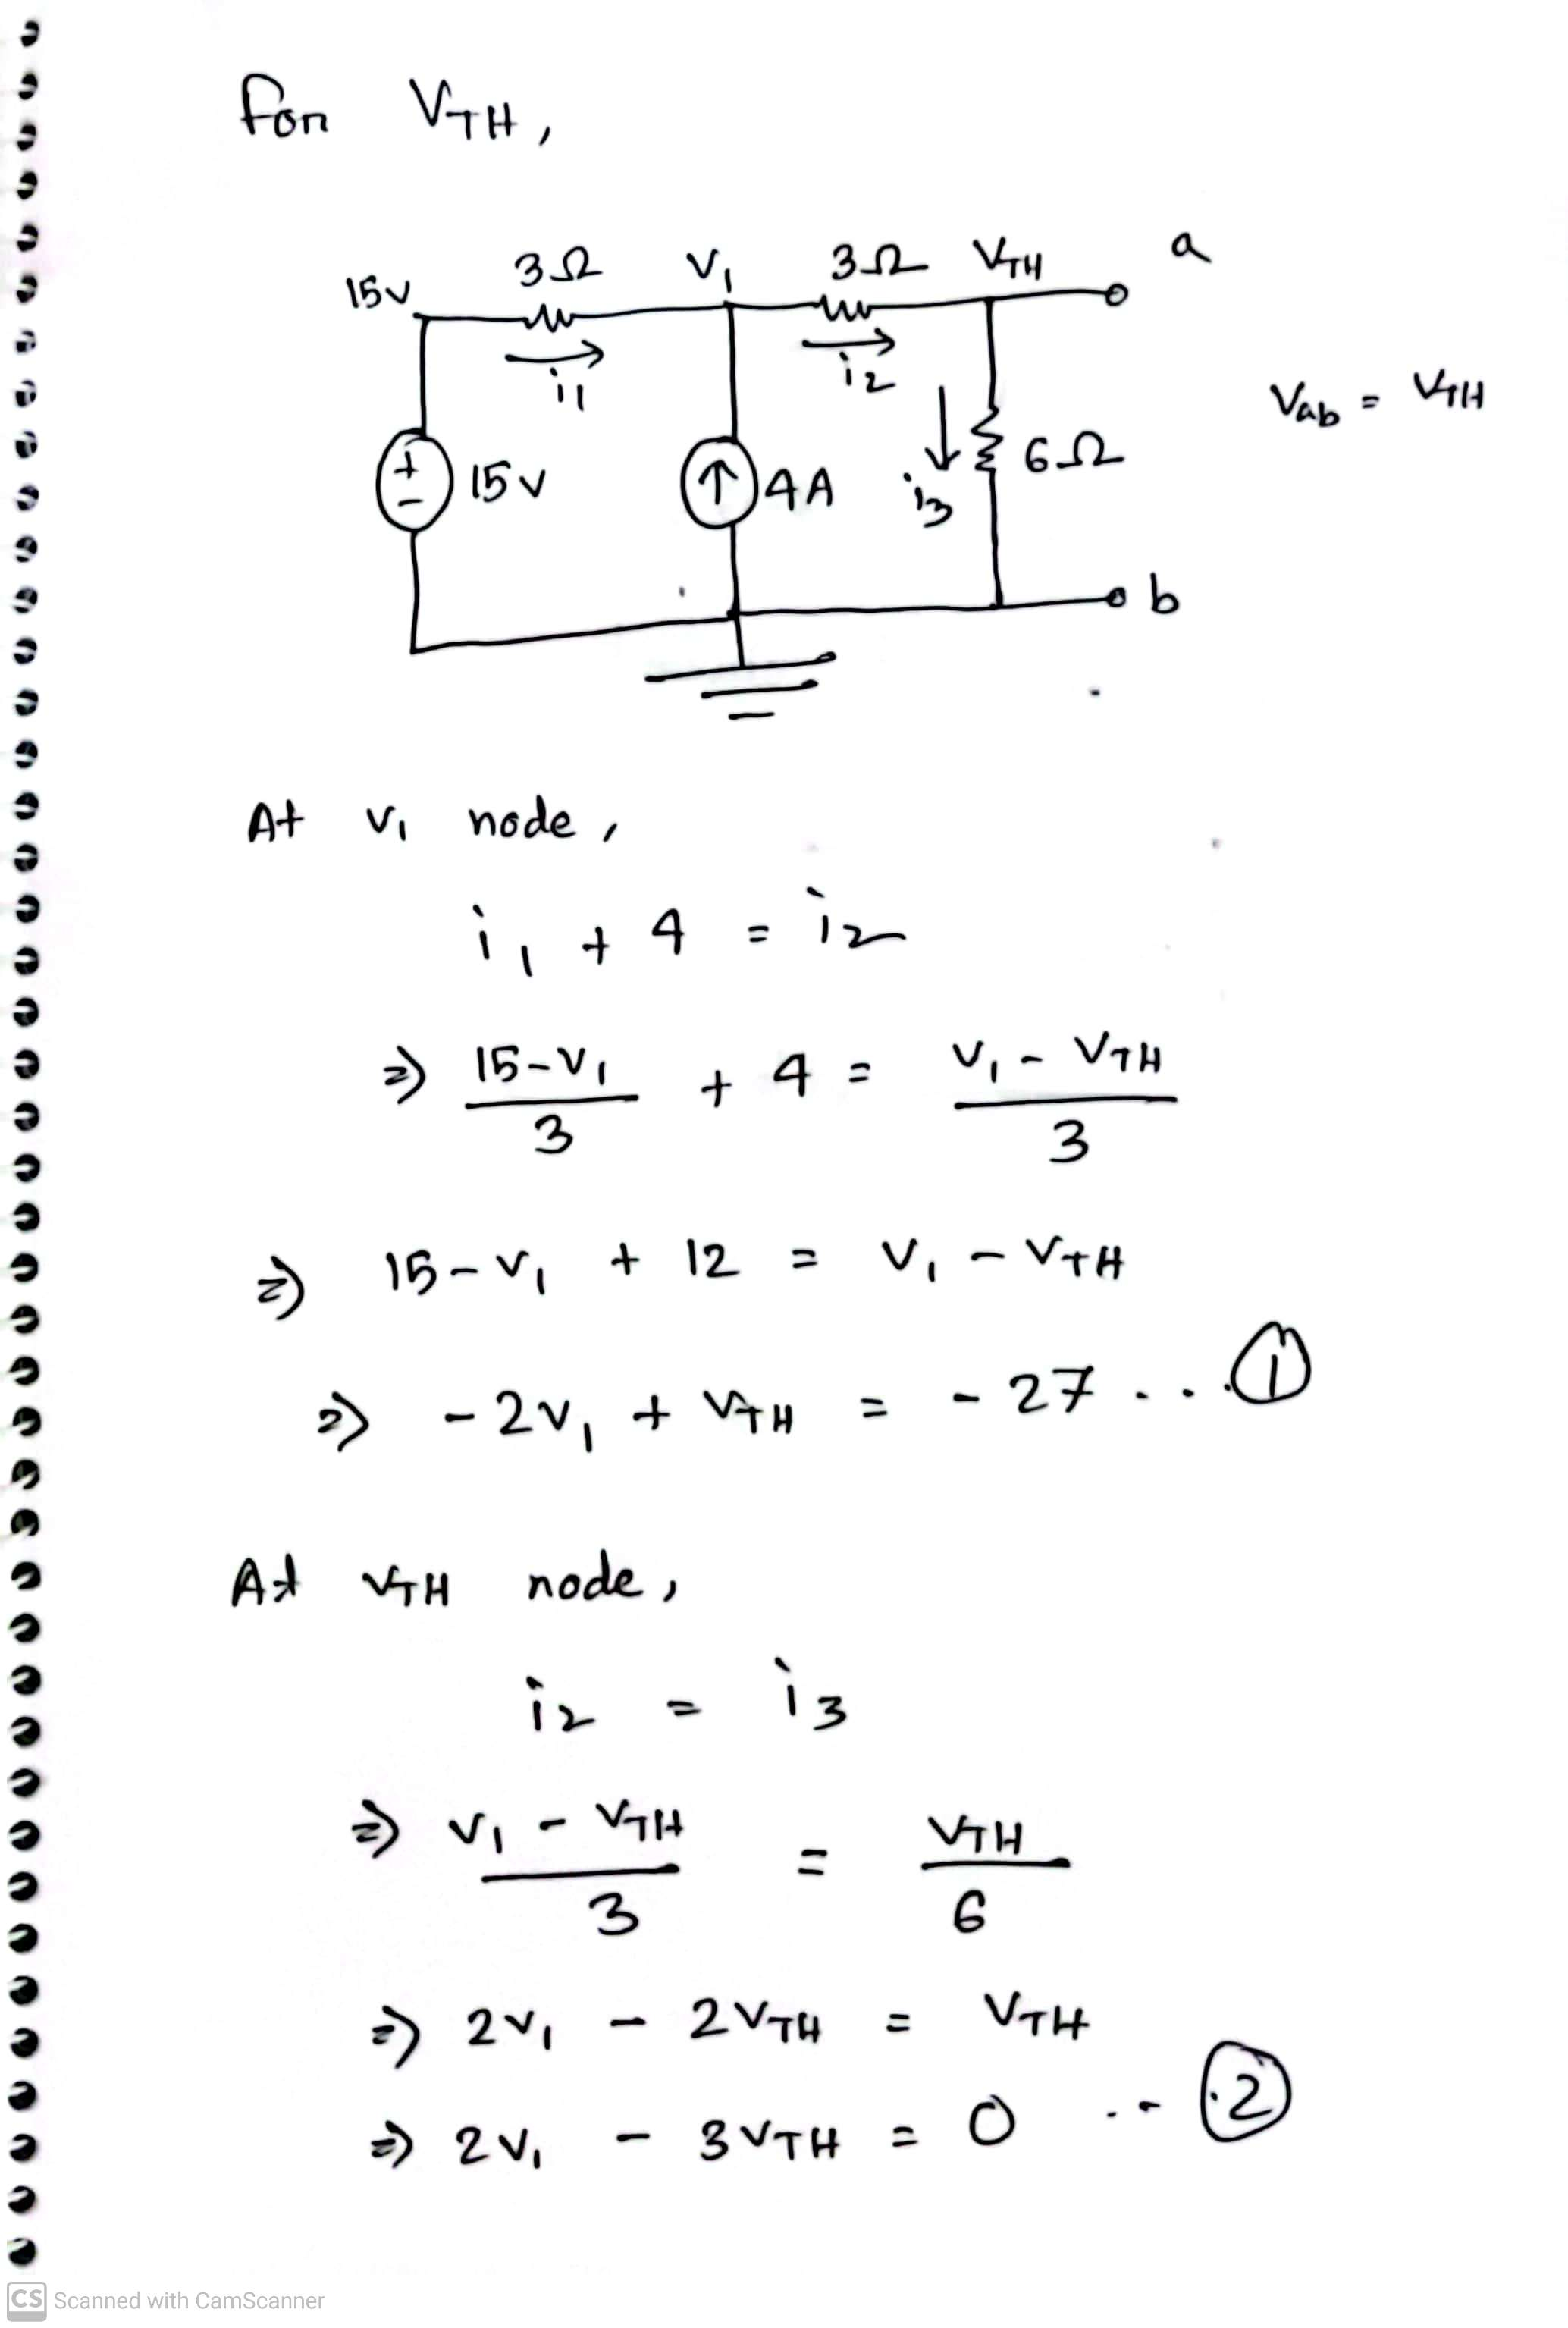 For V_TH,
15v 3Ω V₁ 3Ω V_TH a
i₁ i₂
V_ab = V_TH
+ - 15v ↑ 4A i₃ 6Ω
b
At V₁ node,
i₁ + 4 = i₂
⇒ (15-V₁)/3 + 4 = (V₁ - V_TH)/3
⇒ 15 - V₁ + 12 = V₁ - V_TH
⇒ -2V₁ + V_TH = -27 ... ①
At V_TH node,
i₂ = i₃
⇒ (V₁ - V_TH)/3 = V_TH/6
⇒ 2V₁ - 2V_TH = V_TH
⇒ 2V₁ - 3V_TH = 0 ... ②
CS Scanned with CamScanner